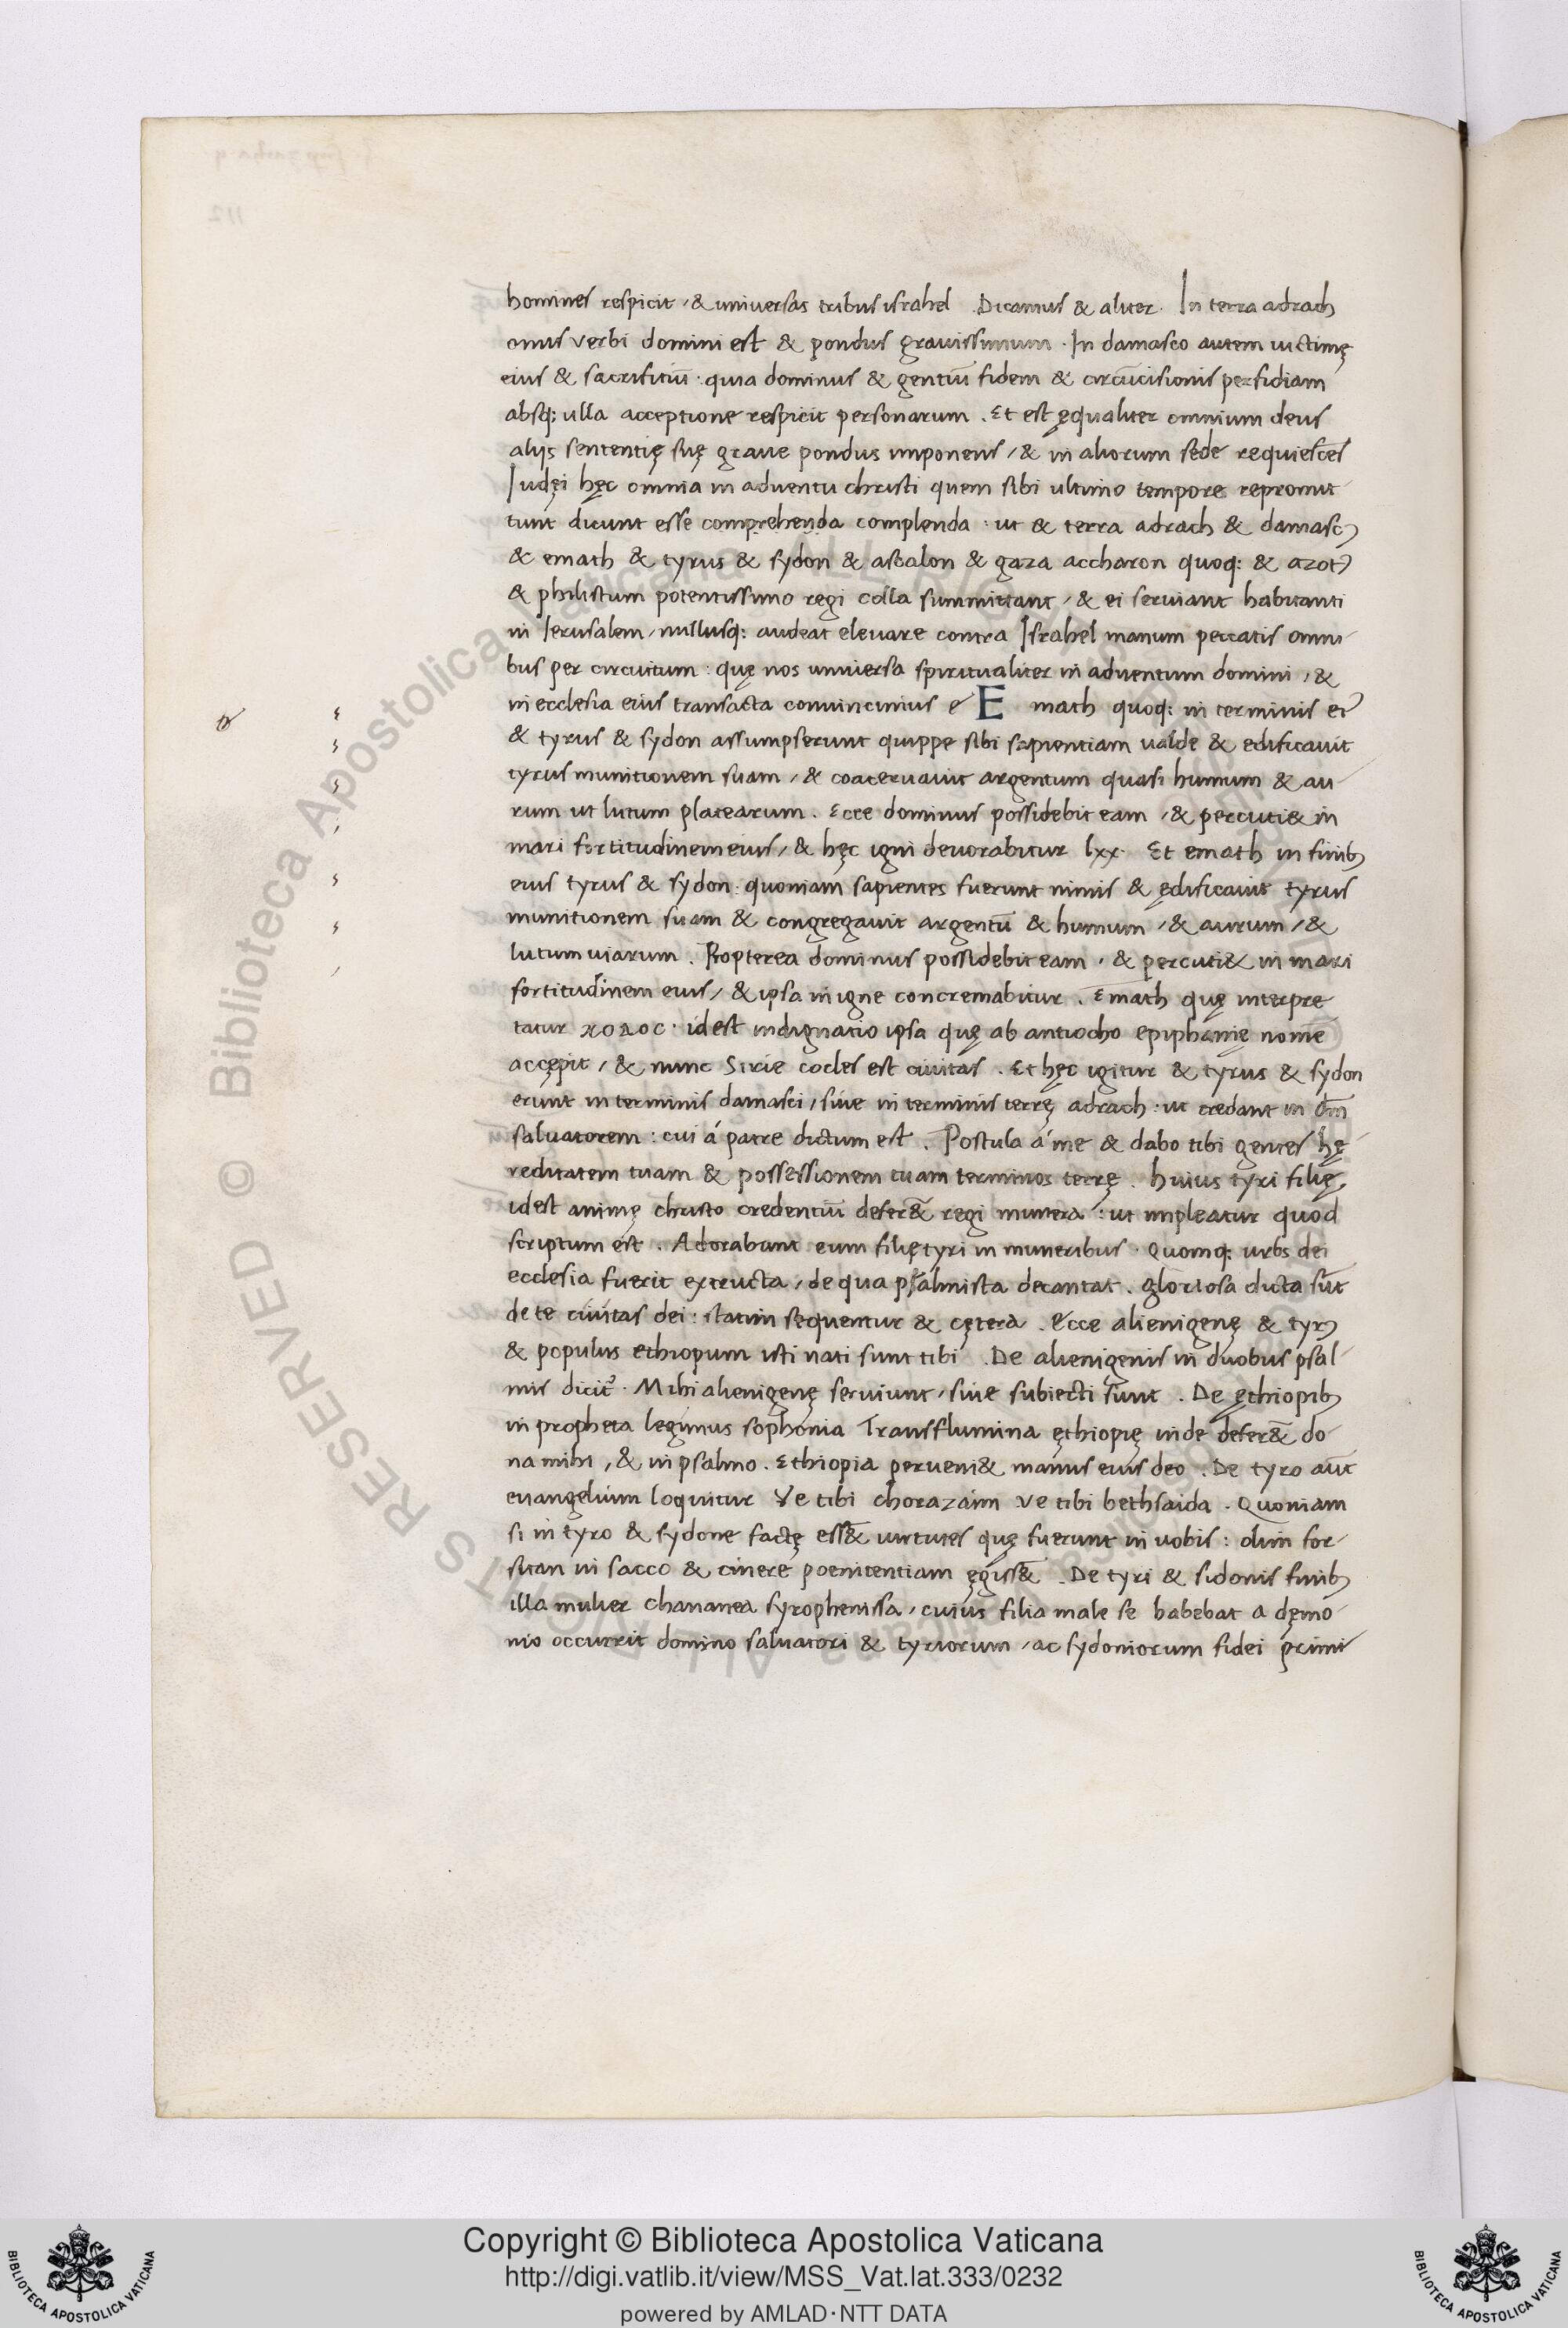 homines respicit, & universas tribus israhel. Dicamus & aliter. In terra adrach
onus verbi domini est & pondus gravissimum. In damasco autem victimę
eius & sacrifitiū. quia dominus & gentiū fidem & circūcisionis perfidiam
absq; ulla acceptione respicit personarum. Et est ęqualiter omnium deus
aliis sententię suę grave pondus imponens, & in aliorum sede requiescēs
Iudęi hęc omnia in adventu christi quem sibi ultimo tempore repromit
tunt dicunt esse comprehenda complenda: ut & terra adrach & damascꝯ
& emath & tyrus & sydon & ascalon & gaza accharon quoq; & azotꝯ
& philistum potentissimo regi colla summittant, & ei serviant habitanti
in Ierusalem, nullusq; audeat elevare contra Israhel manum peccatis omni
bus per circuitum: quę nos universa spiritualiter in adventum domini, &
in ecclesia eius transacta convincimus e E math quoq; in terminis eiꝰ
& tyrus & sydon assumpserunt quippe sibi sapientiam valde & edificavit
tyrus munitionem suam, & coacervavit argentum quasi humum & au
rum ut lutum platearum. Ecce dominus possidebit eam, & percuti& in
mari fortitudinem eius, & hęc igni devorabitur lxx. Et emath in finibꝯ
eius tyrus & sydon: quoniam sapientes fuerunt nimis & ędificavit tyrus
munitionem suam & congregavit argentū & humum, & aurum, &
lutum viarum. Propterea dominus possidebit eam, & percuti& in mari
fortitudinem eius, & ipsa in igne concremabitur. Emath quę interpre
tatur χολος. idest indignatio ipsa quę ab antiocho epiphanię nomē
accępit, & nunc Sirie cocles est civitas. Et hęc igitur & tyrus & sydon
erunt in terminis damasci, sive in terminis terrę adrach: ut credant in dn̄m
salvatorem: cui á patre dictum est. Postula á me & dabo tibi gentes hę
reditatem tuam & possessionem tuam terminos terrę. huius tyri filię,
idest animę christo credentiū defer& regi munera: ut impleatur quod
scriptum est. Adorabunt eum filię tyri in muneribus. Quomq; urbs dei
ecclesia fuerit extructa, de qua psalmista decantat. gloriosa dicta sūt
de te civitas dei: statim sequentur & cętera. Ecce alienigenę & tyrꝯ
& populus ethiopum isti nati sunt tibi. De alienigenis in duobus psal
mis dicit᷑. Mihi alienigenę serviunt, sive subiecti sunt. De ęthiopibꝯ
in propheta legimus sophonia Trans flumina ęthiopię inde defer& do
na mihi, & in psalmo. Ethiopia perveni& manus eius deo. De tyro aūt
evangelium loquitur Ve tibi chorazaim ve tibi bethsaida. Quoniam
si in tyro & sydone factę ess& virtutes quę fuerunt in vobis: olim for
sitan in sacco & cinere poenitentiam ęgiss&. De tyri & sidonis finibꝯ
illa mulier chananea syrophenissa, cuius filia male se habebat a dęmo
nio occurrit domino salvatori & tyriorum, ac sydoniorum fidei primi
Copyright © Biblioteca Apostolica Vaticana
http://digi.vatlib.it/view/MSS_Vat.lat.333/0232
powered by AMLAD·NTT DATA